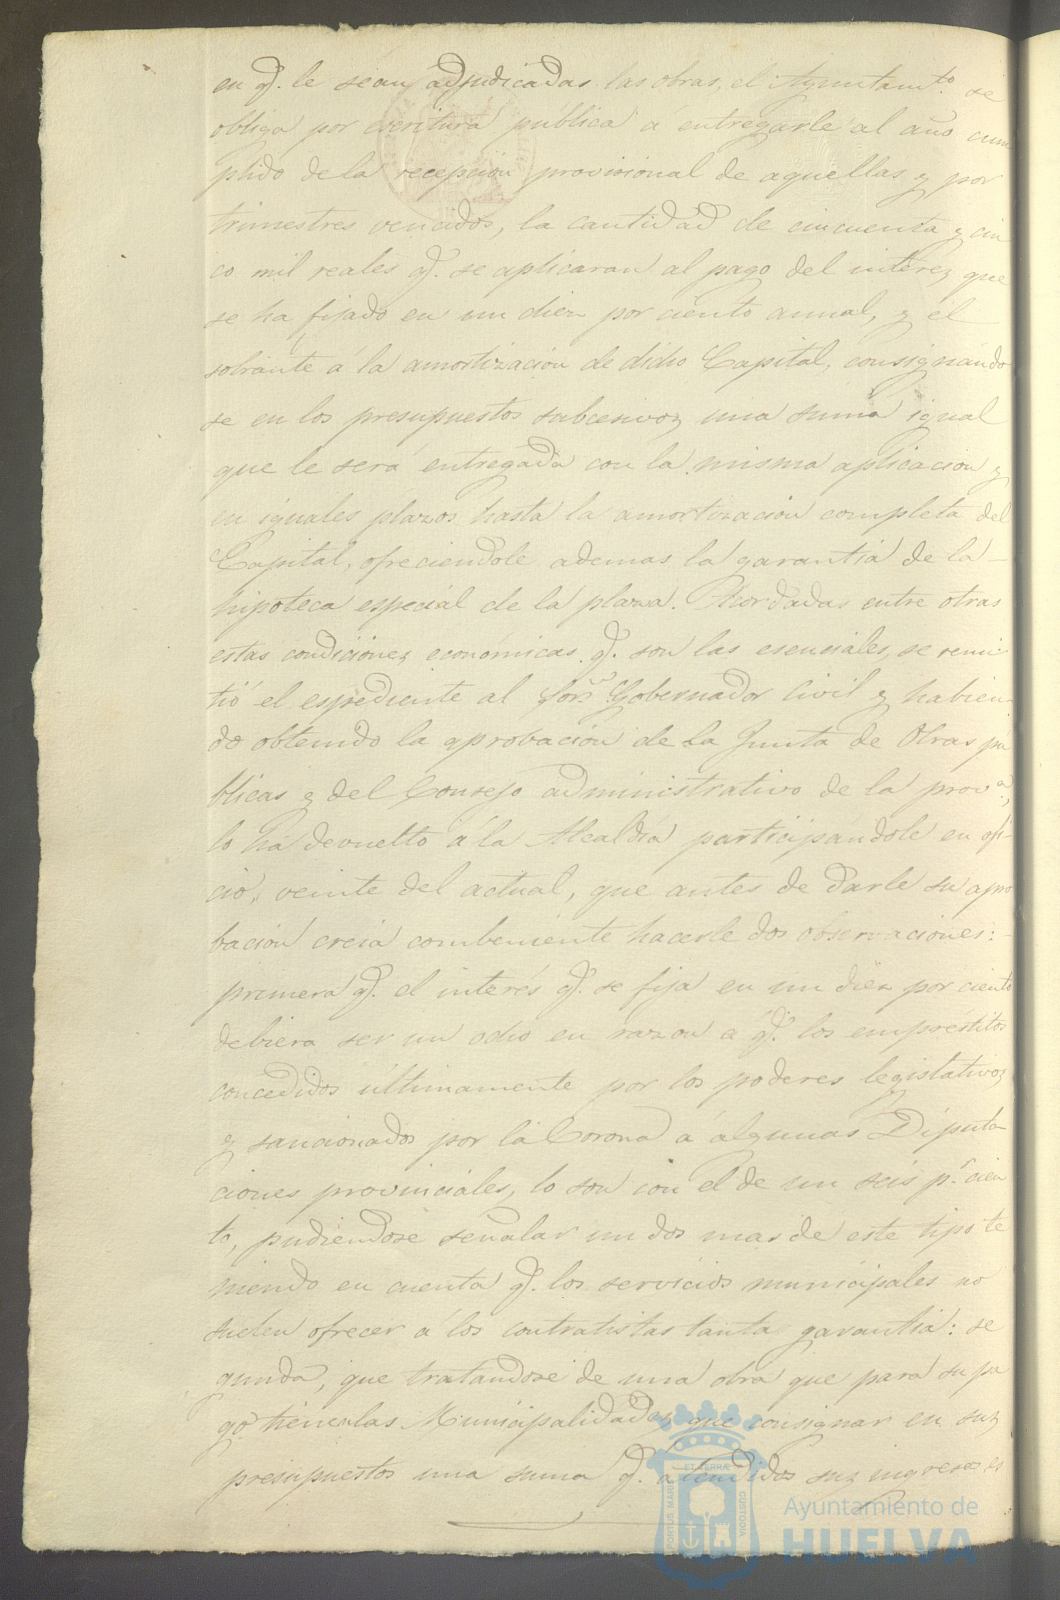 en q.e le sean adjudicadas las obras, el Ayuntam.to se
obliga por escritura pública a entregarle al año cum
plido de la recepcion provisional de aquellas y por
trimestres vencidos, la cantidad de cincuenta y cin
co mil reales q.e se aplicaran al pago del interes que
se ha fijado en un diez por ciento annal, y el
sobrante á la amortizacion de dicho Capital, consignando
se en los presupuestos subcesivos una suma igual
que le será entregada con la misma aplicacion y
en iguales plazos hasta la amortizacion completa del
Capital, ofreciendole ademas la garantia de la
hipoteca especial de la plaza. Acordadas entre otras
estas condiciones económicas q.e son las esenciales, se remi
tió el espediente al Sor. Gobernador Civil y habien
do obtenido la aprobacion de la Junta de Obras pú
blicas y del Consejo administrativo de la prov.a,
lo ha devuelto á la Alcaldia participándole en ofi-
cio, veinte del actual, que antes de darle su apro
bacion creia combeniente hacerle dos observaciones:
primera q.e el interés q.e se fija en un diez por ciento
debiera ser un ocho en razon a q.e los empréstitos
concedidos últimamente por los poderes legislativos
y sancionados por la Corona á algunas Diputa
ciones provinciales, lo son con el de un seis p.r cien
to, pudiendose señalar un dos mas de este tipo te
niendo en cuenta q.e los servicios municipales no
suelen ofrecer á los contratistas tanta garantia: se
gunda, que tratandose de una obra que para su pa
go tienen las Municipalidades que consignar en sus
presupuestos una suma q.e atendidos sus ingresos es
PORTUS MARIS ET TERRÆ CUSTODIA
Ayuntamiento de
HUELVA